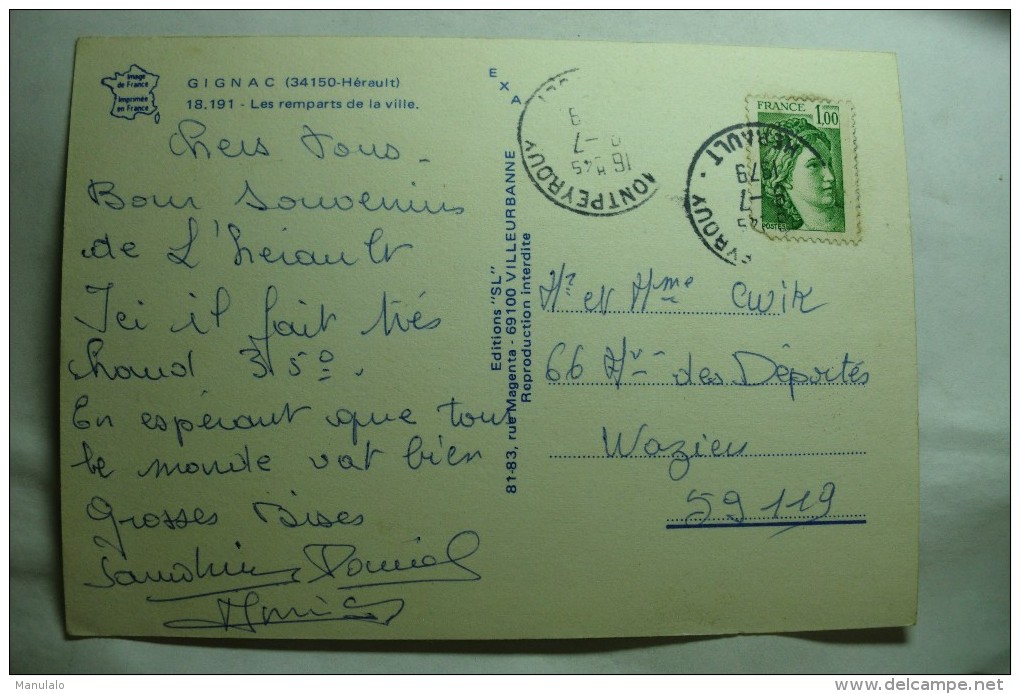 Image
de France
Imprimée
en France
GIGNAC (34150-Hérault)
18.191 - Les remparts de la ville.
Chers Tous -
Bons Souvenirs
de L'hérault
Ici il fait très
chaud 35°.
En espérant que tout
le monde vat bien
Grosses Bises
EXA
Editions "SL"
81-83, rue Magenta - 69100 VILLEURBANNE
Reproduction interdite
MONTPEYROUX
16 H 45
-7
FRANCE
1,00
POSTES
HERAULT
1979
-7
45
Mr et Mme Cwik
66 des Déportés
Waziers
59119
Manulalo
delcampe.net